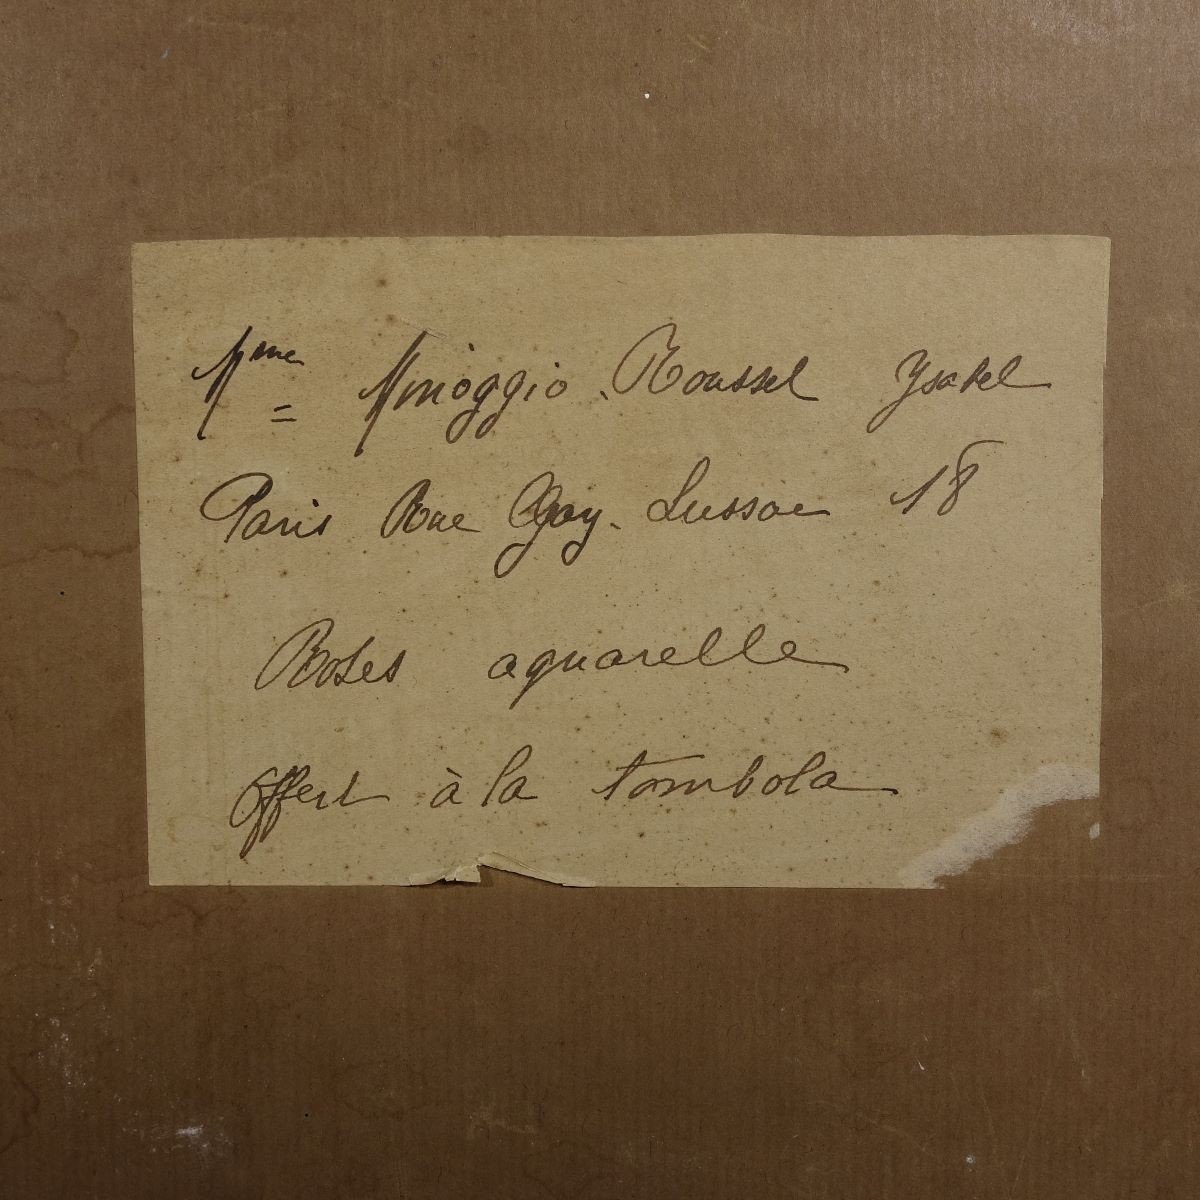 Mme Minoggio. Roussel Ysabel
Paris Rue Gay-Lussac 18
Roses aquarelle
Offert à la tombola